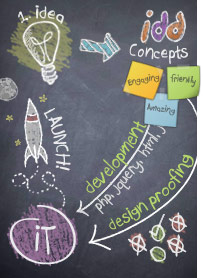 1. idea
idd
Concepts
Engaging
friendly
Amazing
LAUNCH!
development
php, jquery, html, js
design proofing
iT